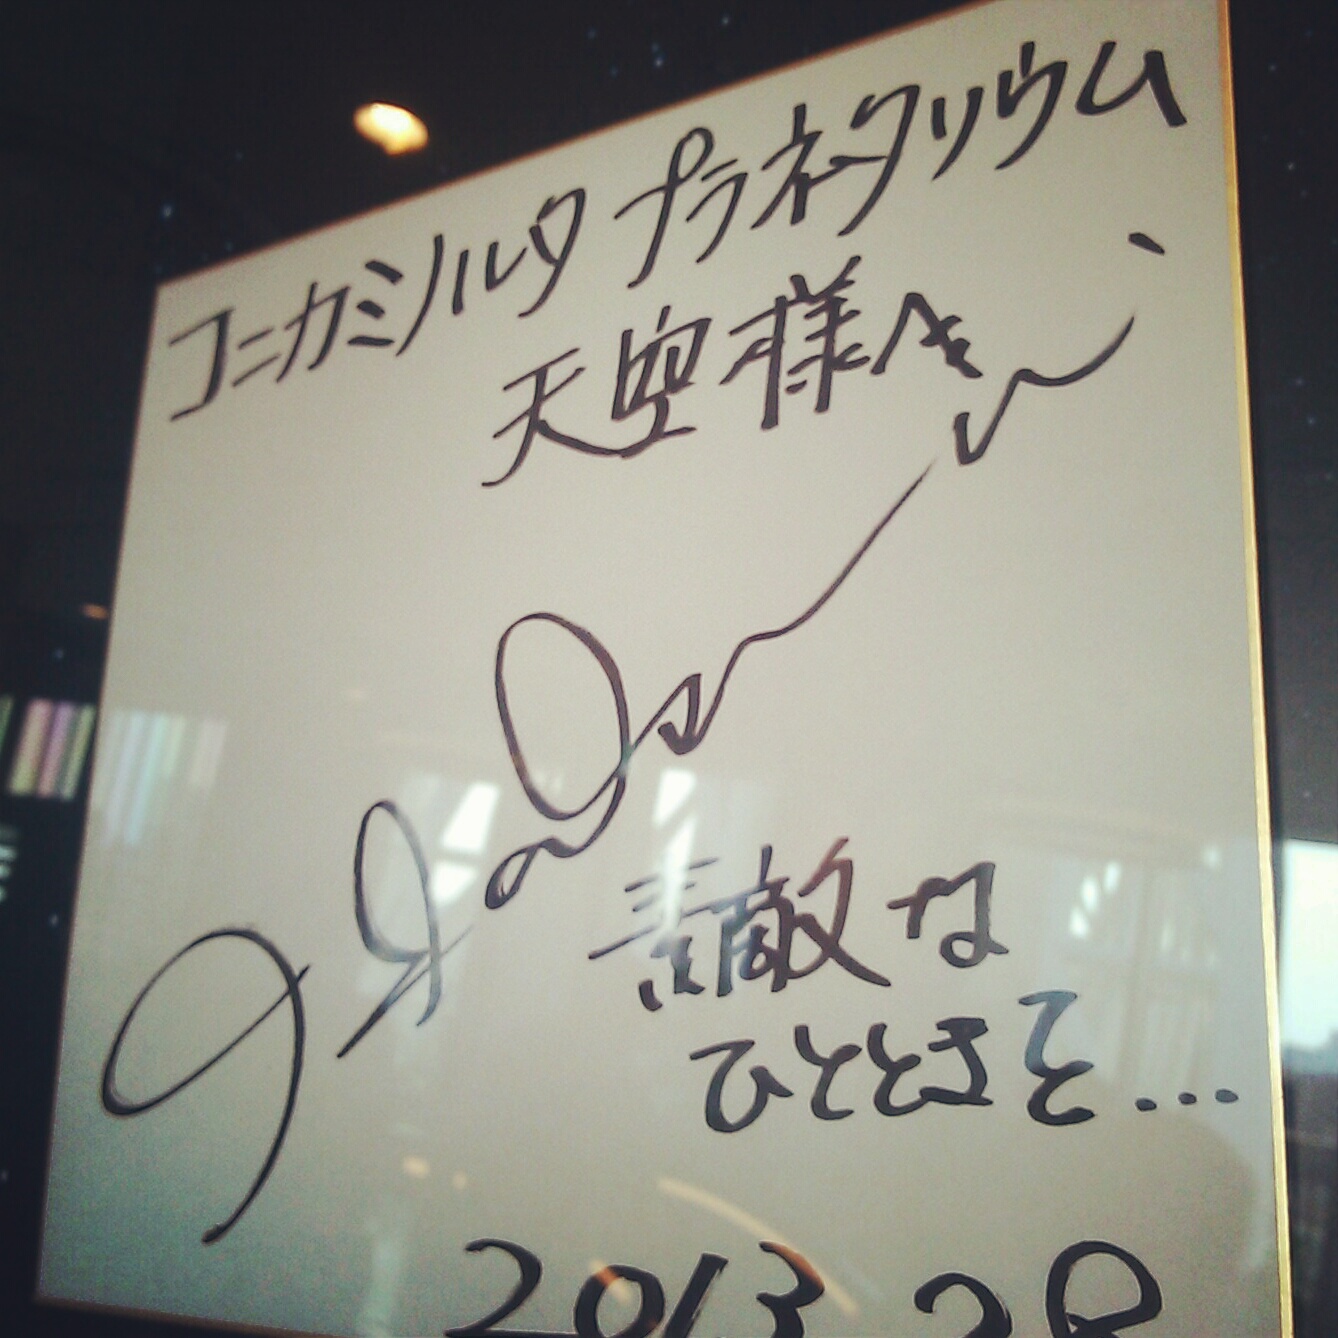 コニカミノルタ プラネタリウム
天空様へ
素敵な
ひとときを...
2013